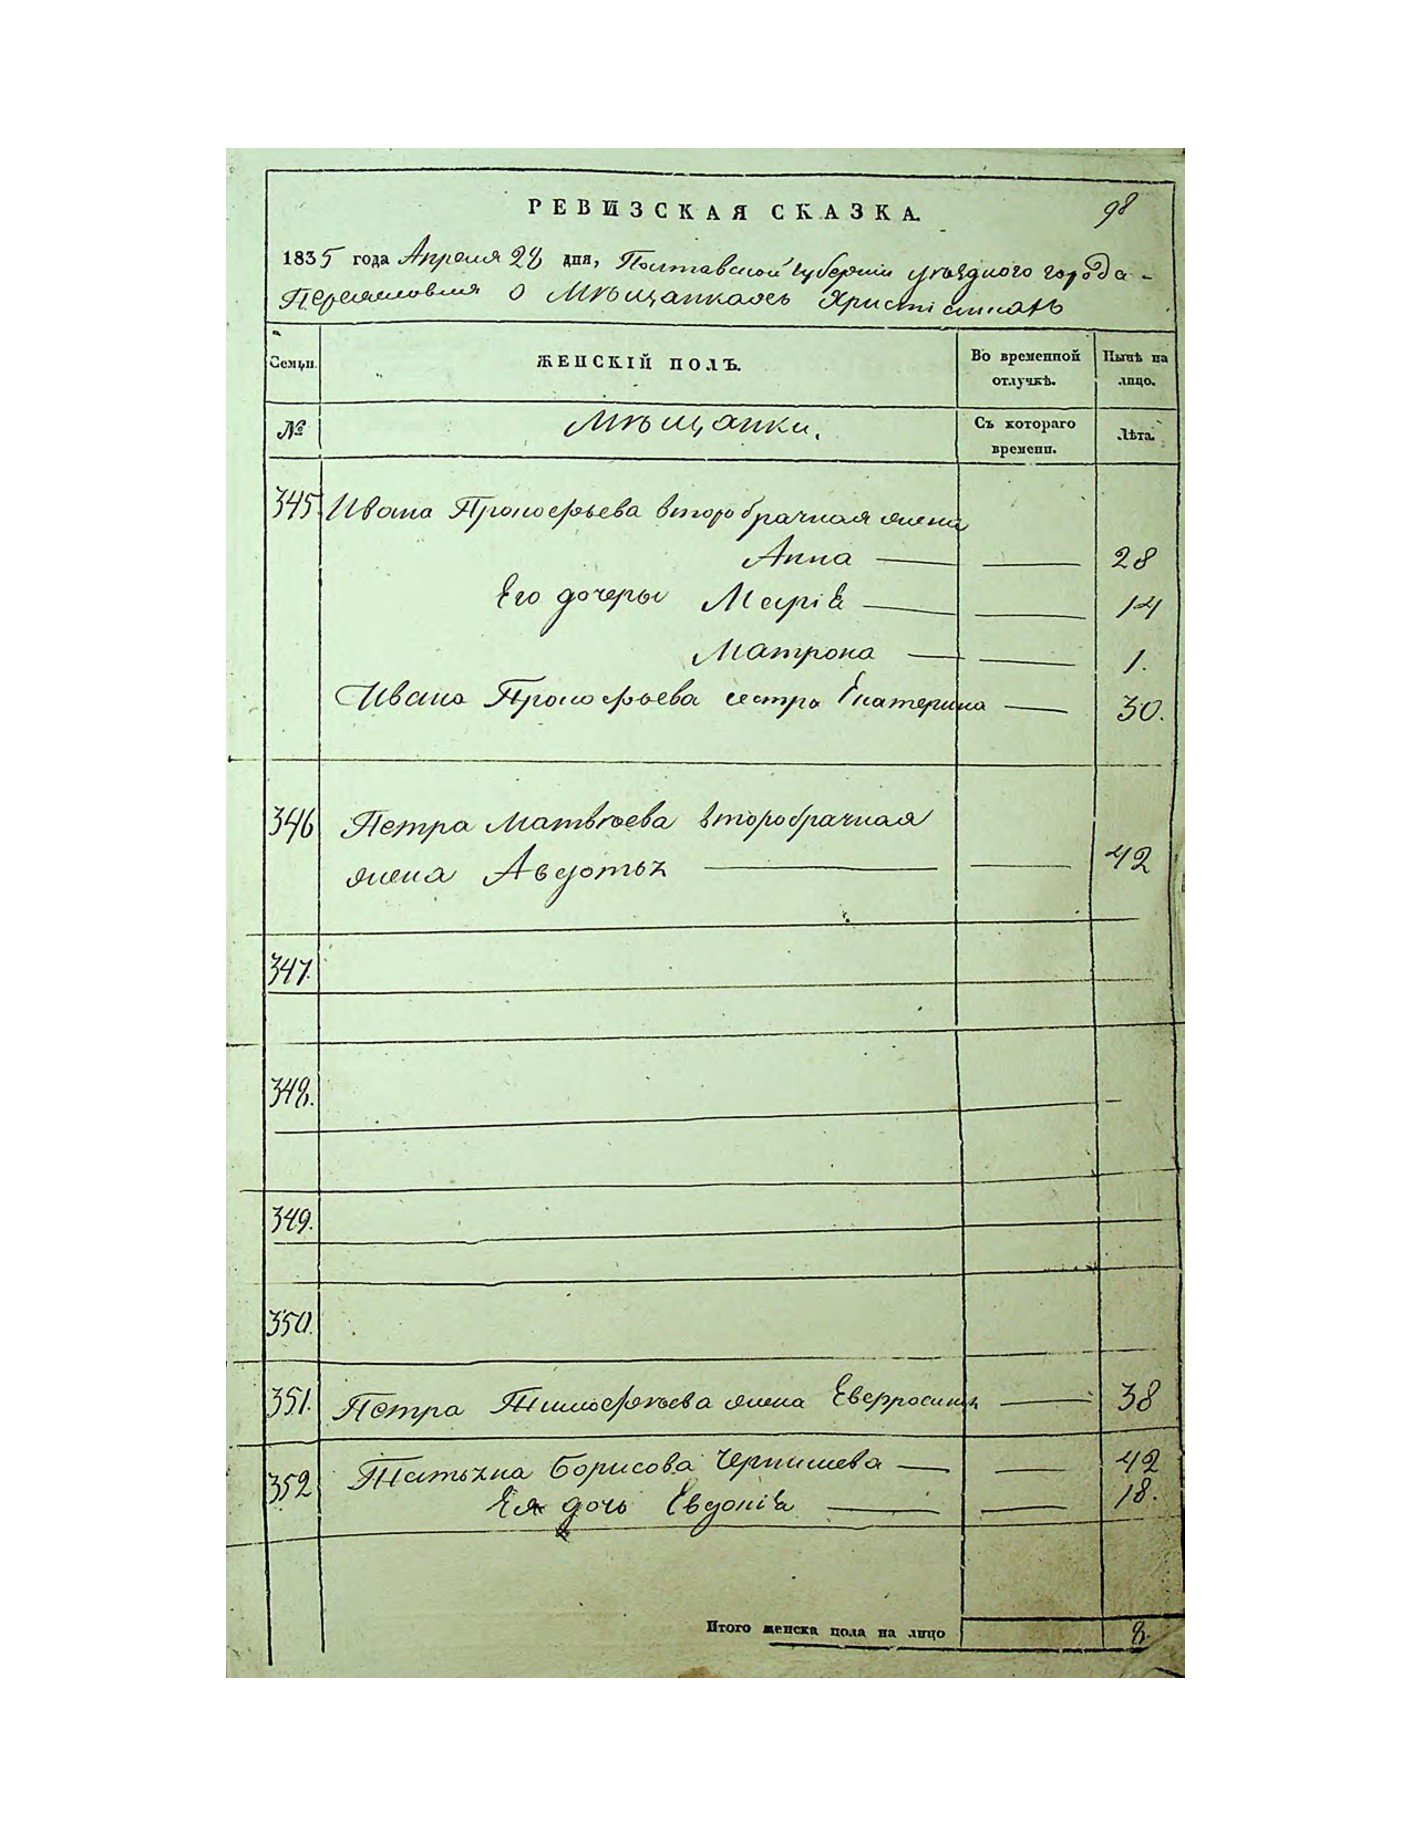 РЕВИЗСКАЯ СКАЗКА.
98
1835 года Апреля 28 дня, Полтавской губернии уѣзднаго города
Переяславля о Мѣщанкахъ Христіанахъ
Семьи.
ЖЕНСКІЙ ПОЛЪ.
Во временной отлучкѣ.
Нынѣ на лицо.
№
Мѣщанки.
Съ котораго времени.
Лѣта.
345. Ивана Прокофьева второбрачная жена
Анна — — 28
Его дочеры Марія — — 14
Матрона — — 1.
Ивана Прокофьева сестра Екатерина — 30.
346 Петра Матвѣева второбрачная
жена Авдотья — — 42
347.
348.
349.
350.
351. Петра Тимофѣева жена Евфросинья — 38
352 Татьяна Борисова Чернишева — — 42
Ея дочь Евдокія — — 18.
Итого женска пола на лицо 8.